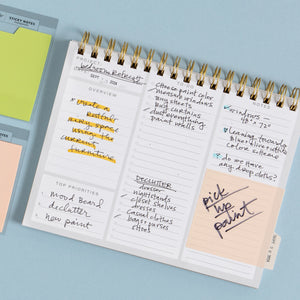 STICKY NOTES
PROJECT
bedroom Refresh
SEPT
OVERVIEW
create a
restful
using the
current
furniture
TOP PRIORITIES
mood board
declutter
new paint
choose paint color
measure windows
buy sheets
buy curtains
dust everything
paint walls
DECLUTTER
dresser
nightstands
closet shelves
dresses
casual clothes
bags & purses
shoes
NOTES
windows -
48" x 72"
leaning towards
blue + olive + white
color scheme
do we have
any drop cloths?
pick
up
paint